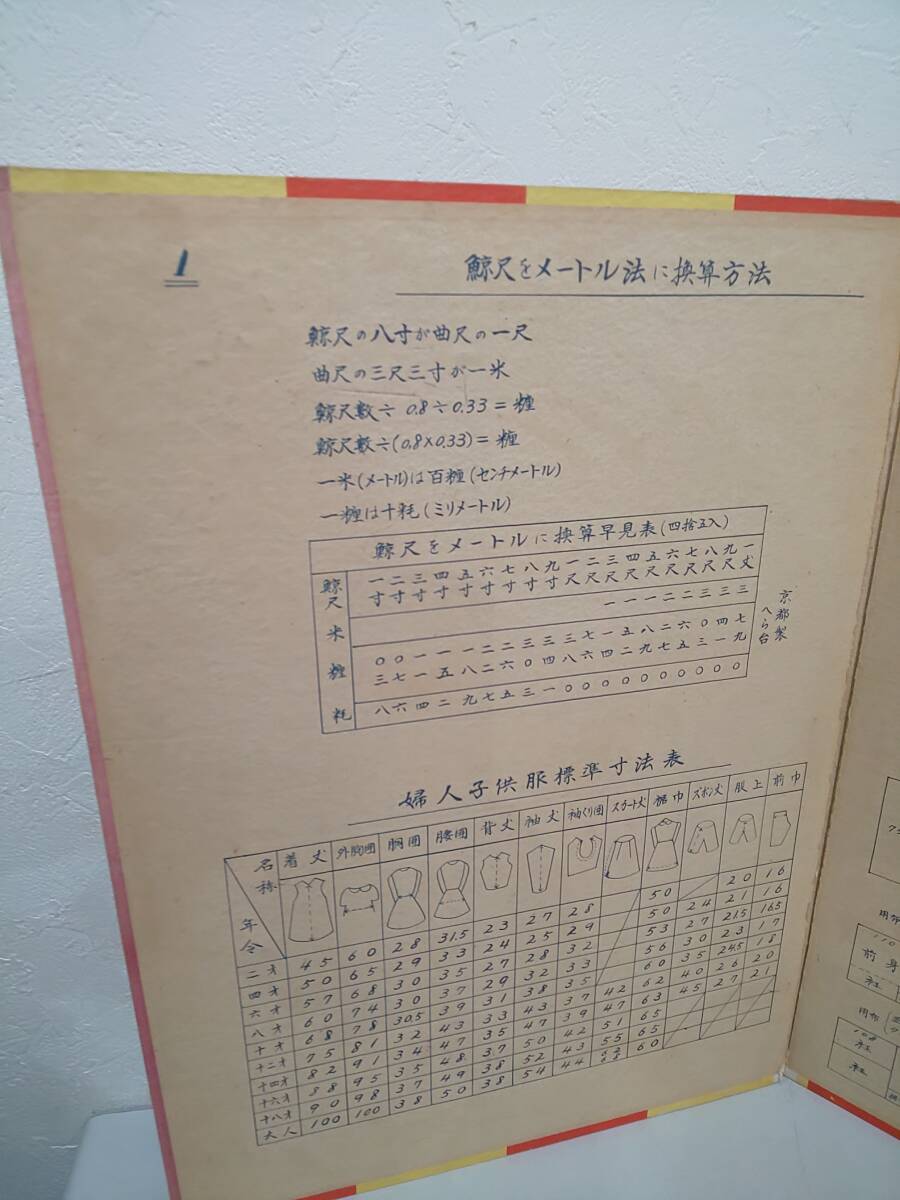 1
鯨尺をメートル法に換算方法
鯨尺の八寸が曲尺の一尺
曲尺の三尺三寸が一米
鯨尺数÷0.8÷0.33=糎
鯨尺数÷(0.8×0.33)=糎
一米(メートル)は百糎(センチメートル)
一糎は十耗(ミリメートル)
鯨尺をメートルに換算早見表(四捨五入)
鯨尺 一寸 二寸 三寸 四寸 五寸 六寸 七寸 八寸 九寸 一尺 二尺 三尺 四尺 五尺 六尺 七尺 八尺 九尺 一丈
米 一 一 一 二 二 三 三 三
糎 〇三 〇七 一一 一五 一八 二二 二六 三〇 三四 三八 七六 一四 五二 八九 二七 六五 〇三 四一 七九
耗 八 六 四 二 九 七 五 三 一 〇 〇 〇 〇 〇 〇 〇 〇 〇 〇
京都製
へら台
婦人子供服標準寸法表
名称 年令 着丈 外胸囲 胴囲 腰囲 背丈 袖丈 袖ぐり囲 スカート丈 裾巾 ズボン丈 股上 前巾
二才 45 60 28 31.5 23 27 28 50 20 16
四才 50 65 29 33 24 25 29 50 24 21 16
六才 57 68 30 35 27 28 32 53 27 21.5 16.5
八才 60 74 30 37 29 32 33 56 30 23 17
十才 68 78 30.5 39 31 38 35 60 35 24.5 18
十二才 75 81 32 43 33 43 37 42 62 40 26 20
十四才 82 91 34 47 35 47 39 47 63 45 27 21
十六才 88 95 35 48 37 50 42 51 65
十八才 90 98 37 49 38 52 43 55 65
大人 100 100 38 50 38 54 44 60
用布
110
前身
社
用布
108
社
社